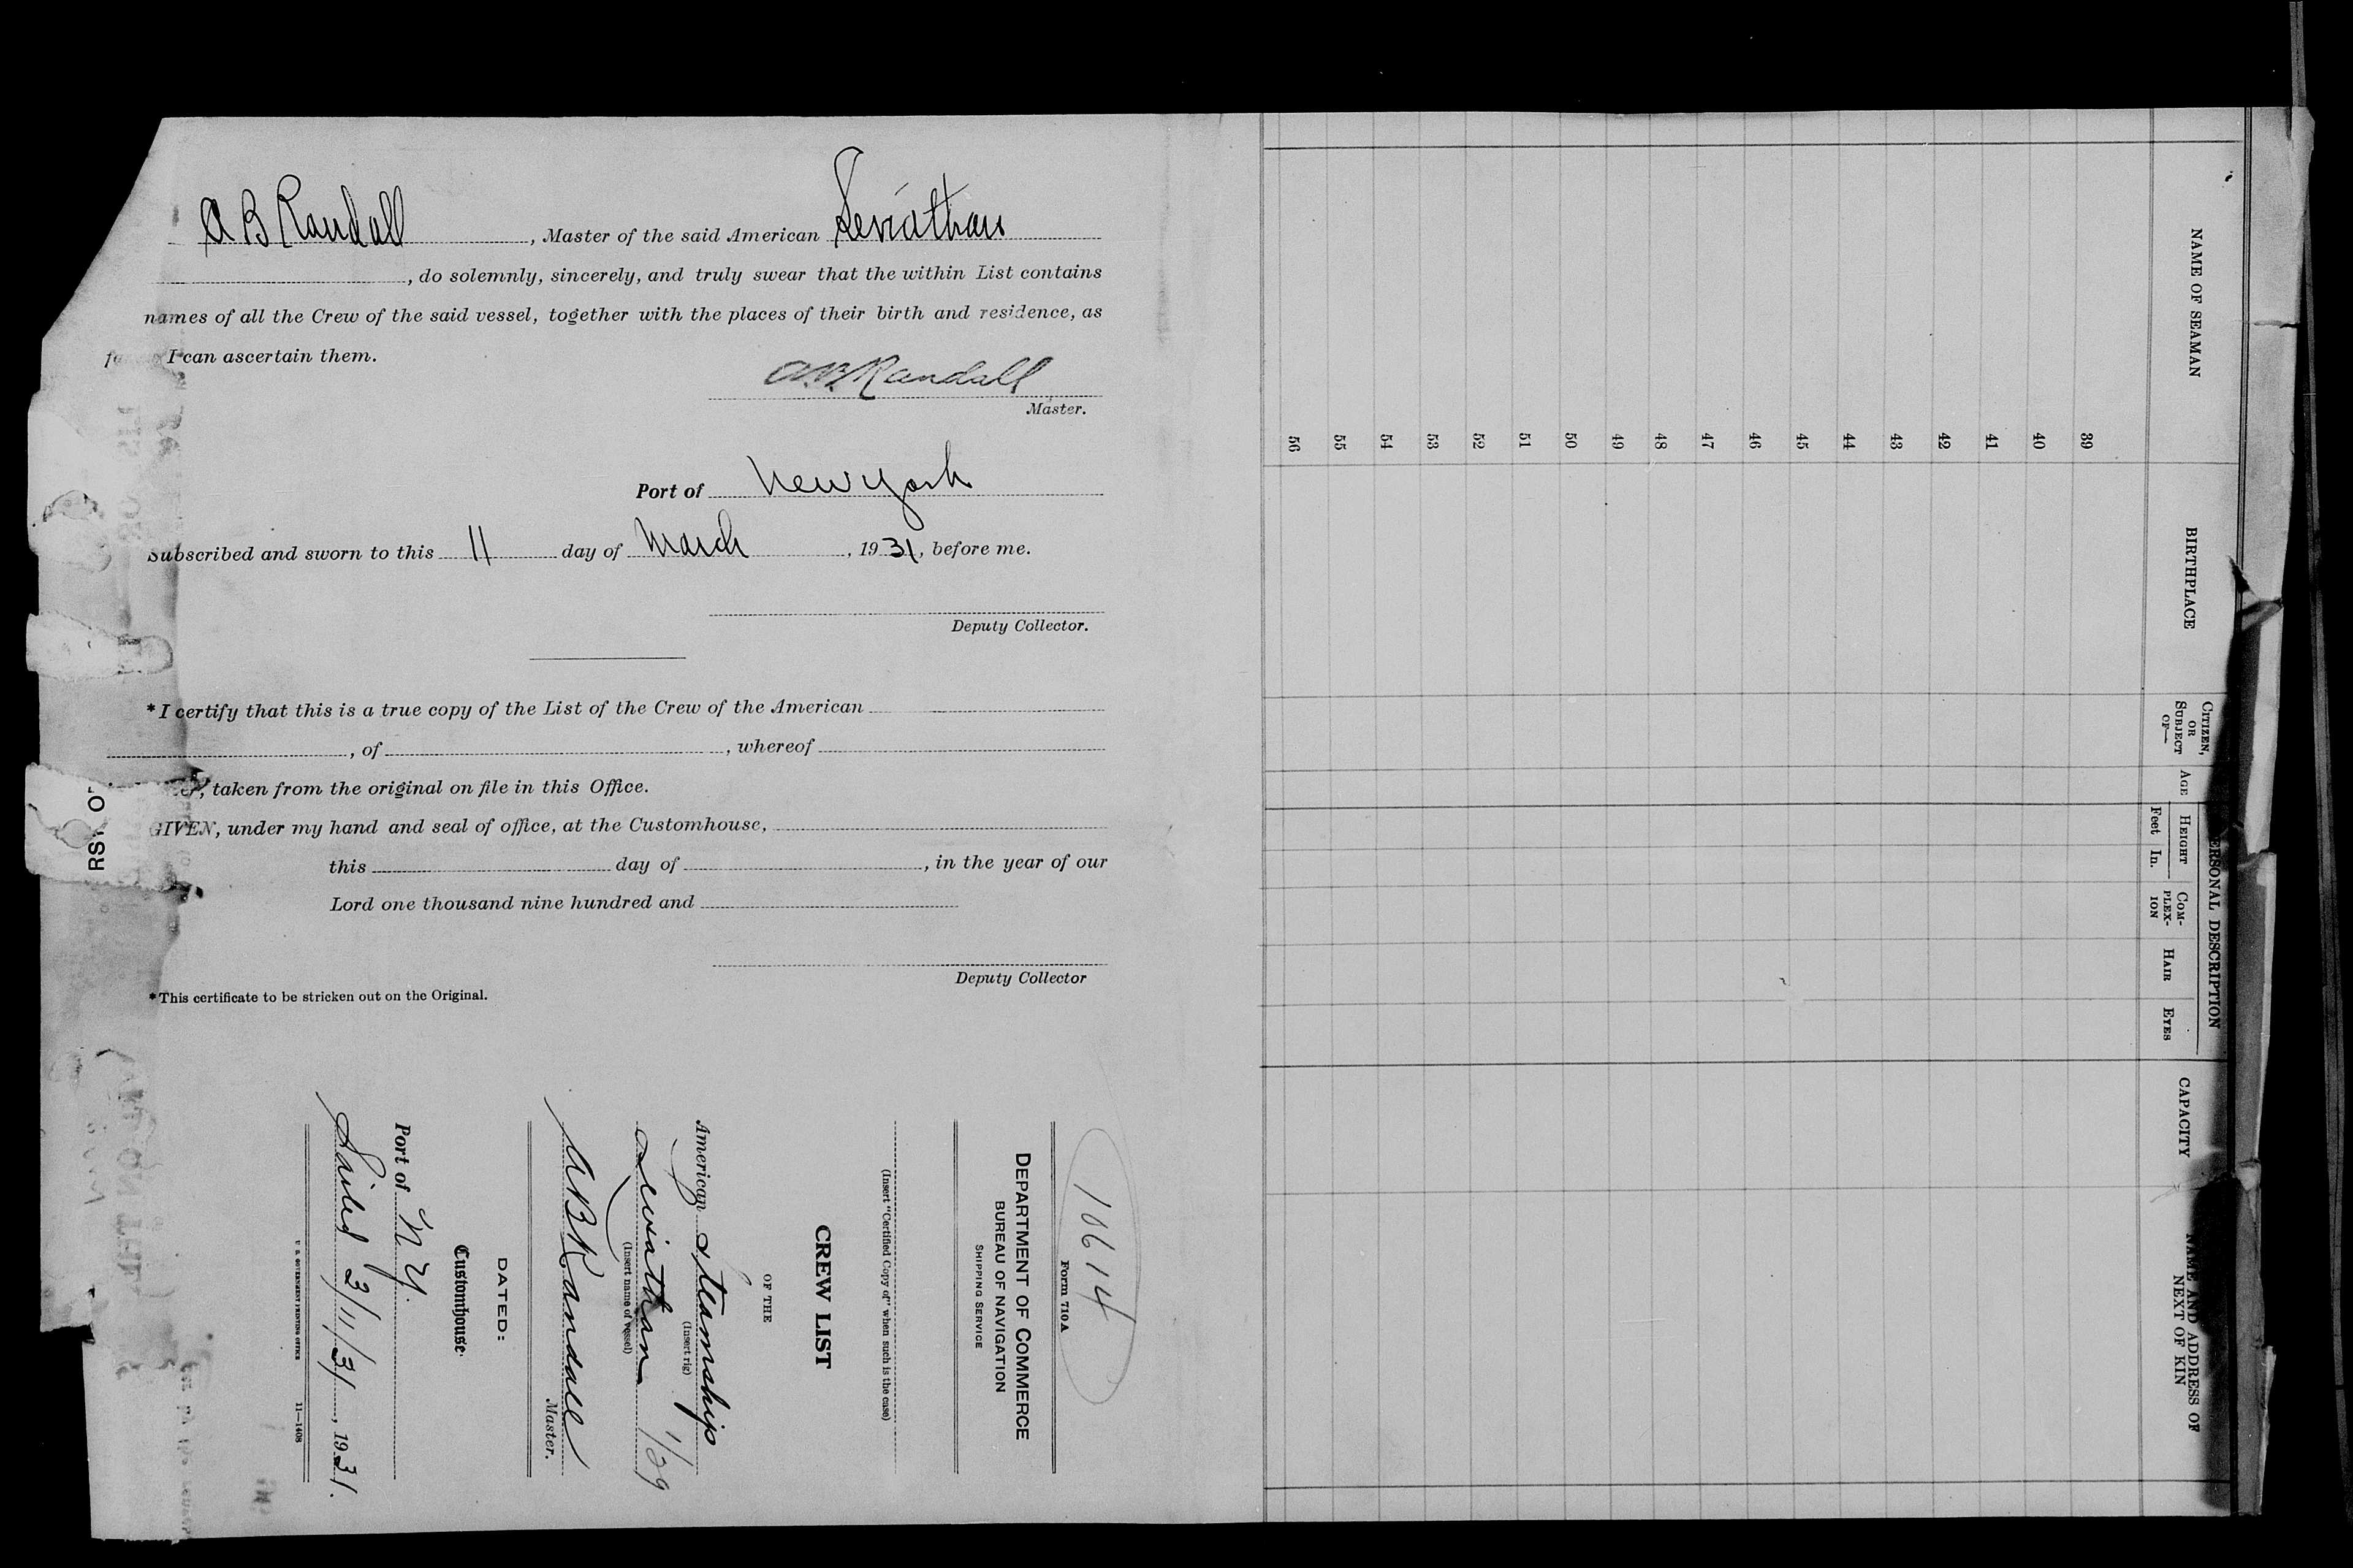 A B Randall, Master of the said American Leviathan
, do solemnly, sincerely, and truly swear that the within List contains
names of all the Crew of the said vessel, together with the places of their birth and residence, as
I can ascertain them.
A.B. Randall
Master.
Port of New York
Subscribed and sworn to this 11 day of March, 1931, before me.
Deputy Collector.
*I certify that this is a true copy of the List of the Crew of the American
, of , whereof
, taken from the original on file in this Office.
GIVEN, under my hand and seal of office, at the Customhouse,
this day of , in the year of our
Lord one thousand nine hundred and
Deputy Collector
*This certificate to be stricken out on the Original.
10614
Form 710A
DEPARTMENT OF COMMERCE
BUREAU OF NAVIGATION
SHIPPING SERVICE
(Insert "Certified Copy of" when such is the case)
CREW LIST
OF THE
American Steamship
(Insert rig)
Leviathan 1/29
(Insert name of vessel)
A B Randall
Master.
DATED:
Customhouse.
Port of N.Y.
Sailed 3/11/31, 1931.
U. S. GOVERNMENT PRINTING OFFICE 11—1408
PERSONAL DESCRIPTION
NAME OF SEAMAN
BIRTHPLACE
CITIZEN, OR SUBJECT OF—
AGE
HEIGHT
Feet In.
COM-PLEX-ION
HAIR
EYES
CAPACITY
NAME AND ADDRESS OF NEXT OF KIN
39
40
41
42
43
44
45
46
47
48
49
50
51
52
53
54
55
56